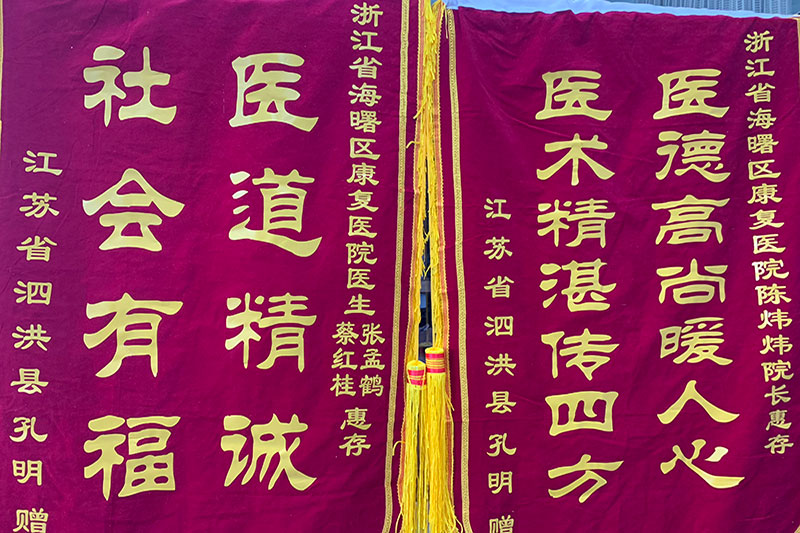 浙江省海曙区康复医院医生
张孟鹤
蔡红桂
惠存
医道精诚
社会有福
江苏省泗洪县孔明 赠
浙江省海曙区康复医院陈炜炜院长惠存
医德高尚暖人心
医术精湛传四方
江苏省泗洪县孔明 赠